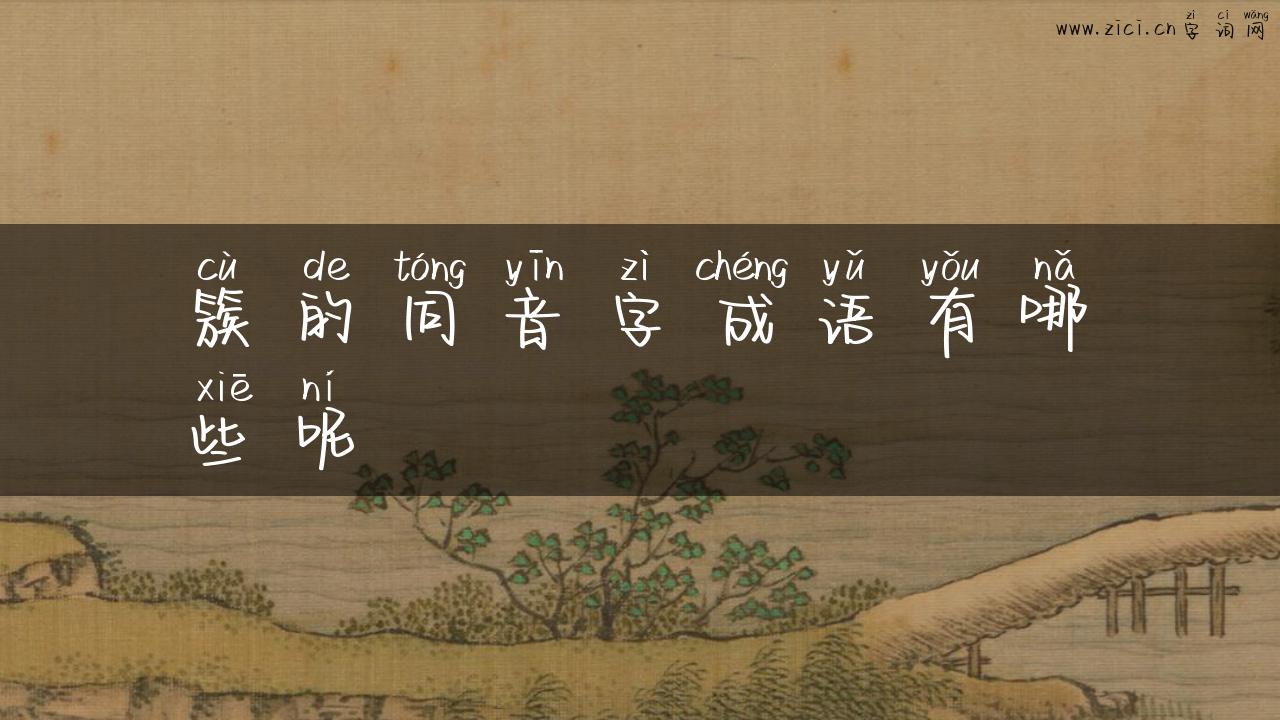 zì cí wǎng
www.zici.cn 字词网
cù de tóng yīn zì chéng yǔ yǒu nǎ
簇的同音字成语有哪
xiē ní
些呢